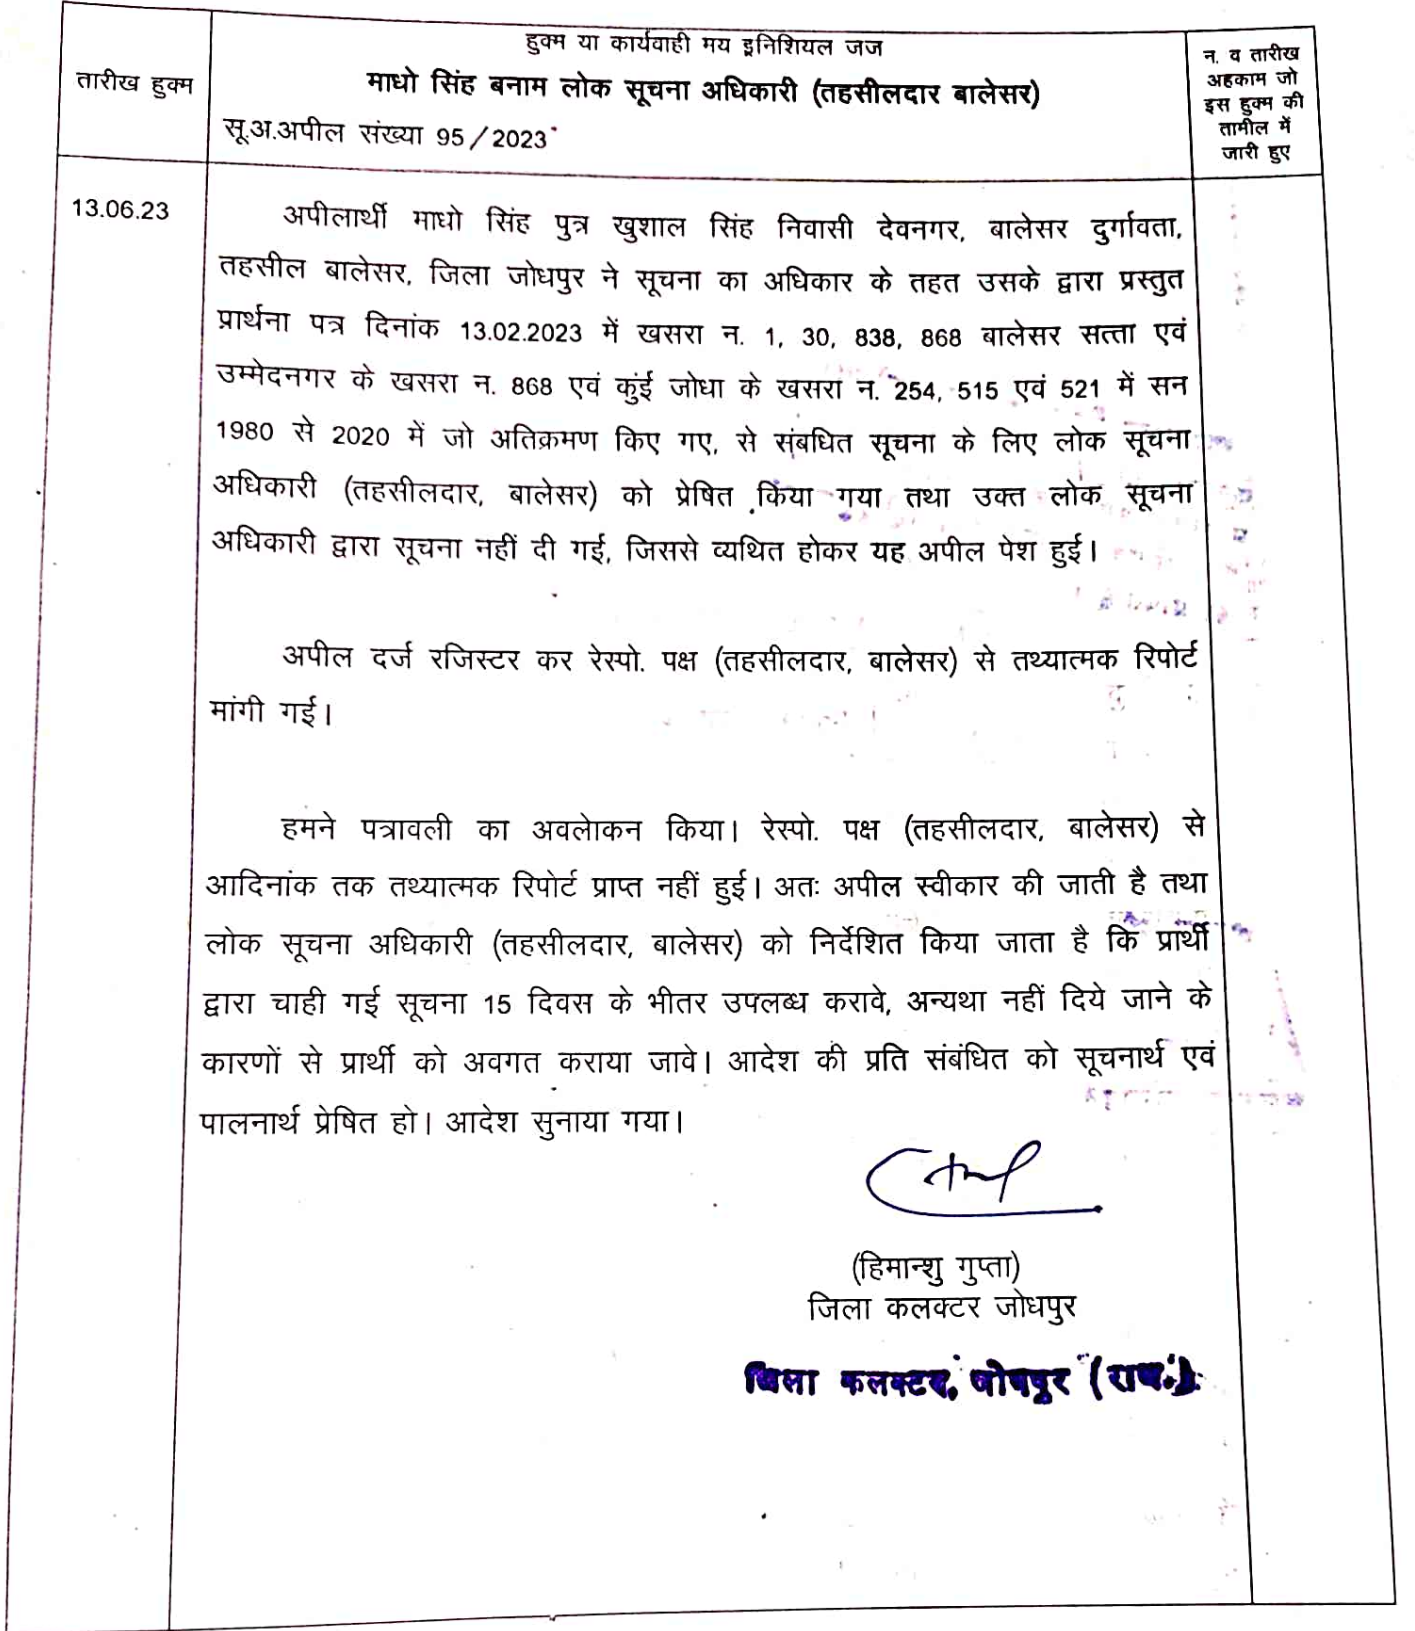 तारीख हुक्म
हुक्म या कार्यवाही मय इनिशियल जज
माधो सिंह बनाम लोक सूचना अधिकारी (तहसीलदार बालेसर)
सू.अ.अपील संख्या 95/2023
न. व तारीख
अहकाम जो
इस हुक्म की
तामील में
जारी हुए
13.06.23
अपीलार्थी माधो सिंह पुत्र खुशाल सिंह निवासी देवनगर, बालेसर दुर्गावता,
तहसील बालेसर, जिला जोधपुर ने सूचना का अधिकार के तहत उसके द्वारा प्रस्तुत
प्रार्थना पत्र दिनांक 13.02.2023 में खसरा न. 1, 30, 838, 868 बालेसर सत्ता एवं
उम्मेदनगर के खसरा न. 868 एवं कुंई जोधा के खसरा न. 254, 515 एवं 521 में सन
1980 से 2020 में जो अतिक्रमण किए गए, से संबधित सूचना के लिए लोक सूचना
अधिकारी (तहसीलदार, बालेसर) को प्रेषित किया गया तथा उक्त लोक सूचना
अधिकारी द्वारा सूचना नहीं दी गई, जिससे व्यथित होकर यह अपील पेश हुई।
अपील दर्ज रजिस्टर कर रेस्पो. पक्ष (तहसीलदार, बालेसर) से तथ्यात्मक रिपोर्ट
मांगी गई।
हमने पत्रावली का अवलोकन किया। रेस्पो. पक्ष (तहसीलदार, बालेसर) से
आदिनांक तक तथ्यात्मक रिपोर्ट प्राप्त नहीं हुई। अतः अपील स्वीकार की जाती है तथा
लोक सूचना अधिकारी (तहसीलदार, बालेसर) को निर्देशित किया जाता है कि प्रार्थी
द्वारा चाही गई सूचना 15 दिवस के भीतर उपलब्ध करावे, अन्यथा नहीं दिये जाने के
कारणों से प्रार्थी को अवगत कराया जावे। आदेश की प्रति संबंधित को सूचनार्थ एवं
पालनार्थ प्रेषित हो। आदेश सुनाया गया।
(हिमान्शु गुप्ता)
जिला कलक्टर जोधपुर
जिला कलक्टर, जोधपुर (राज.)